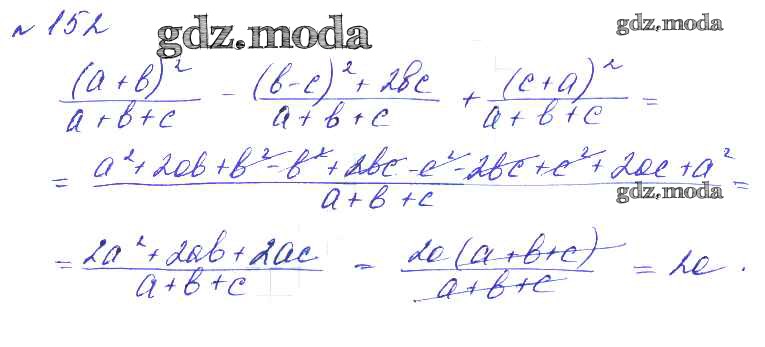 № 152
gdz.moda
gdz.moda
(a+b)²/(a+b+c) - ((b-c)²+2bc)/(a+b+c) + (c+a)²/(a+b+c) =
= (a²+2ab+b²-b²+2bc-c²-2bc+c²+2ac+a²)/(a+b+c) =
gdz.moda
= (2a²+2ab+2ac)/(a+b+c) = (2a(a+b+c))/(a+b+c) = 2a.